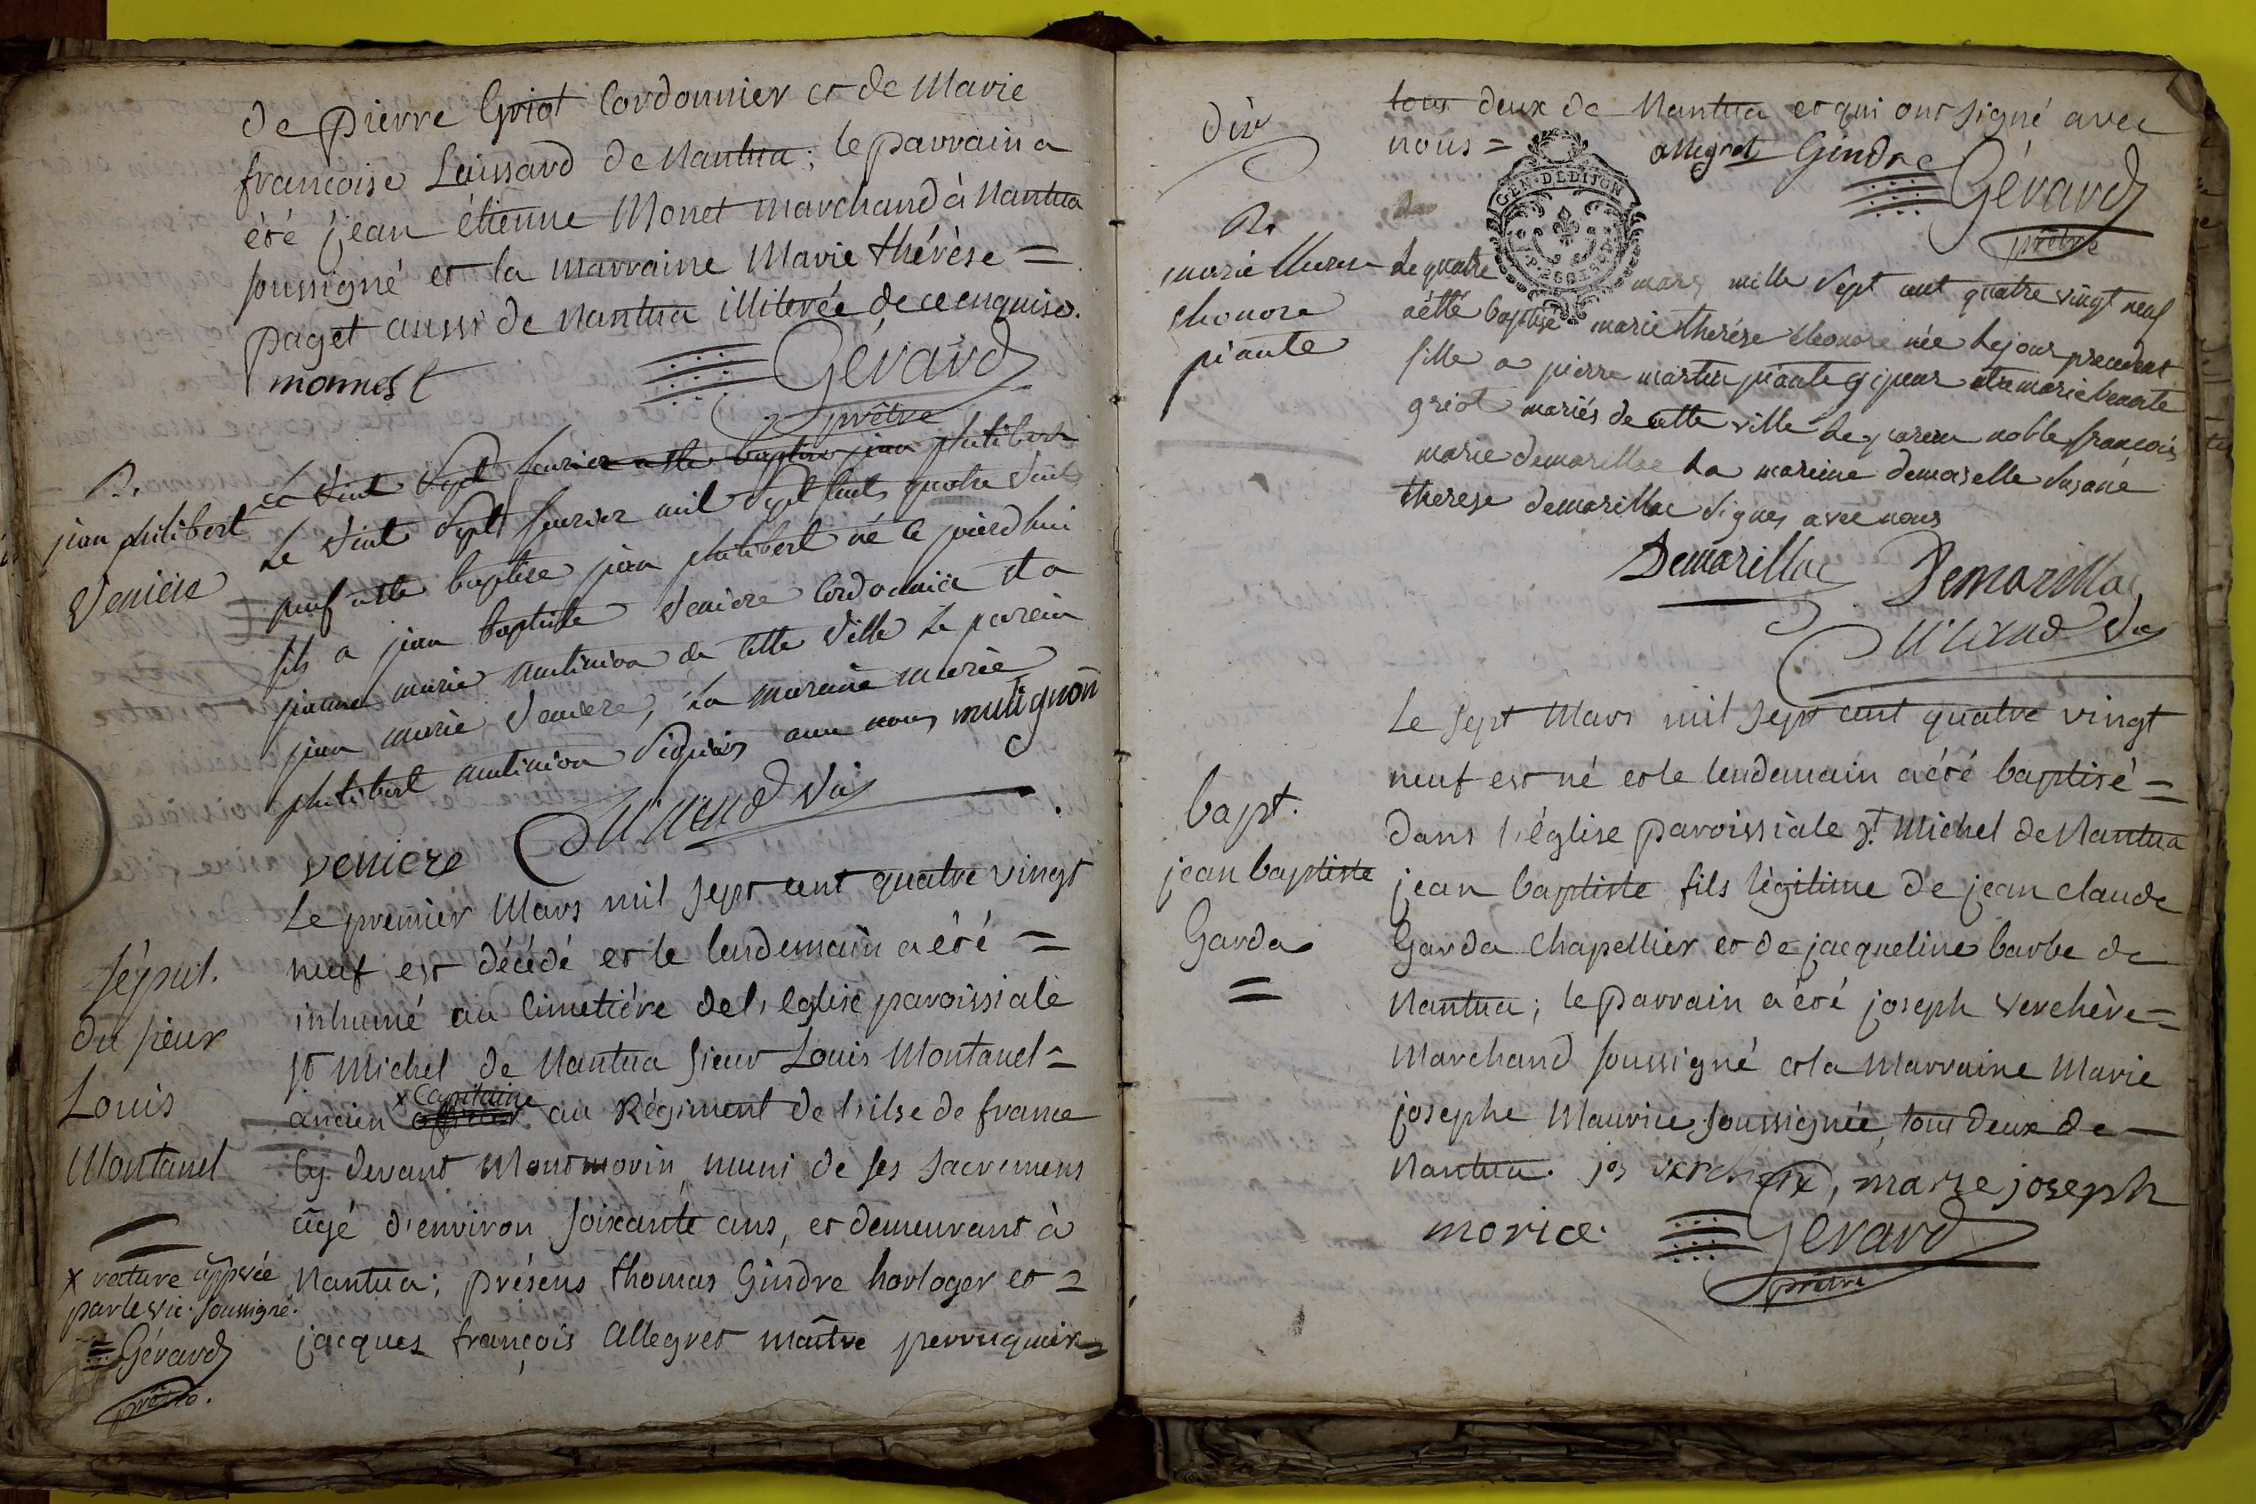 de pierre Griot Cordonnier et de Marie
francoise Laissard de Nantua; le parrain a
été jean étienne Monet marchand à Nantua
soussigné et la marraine Marie thérèse =
paget aussi de Nantua illiterée de ce enquise.
monnest Gérard
prêtre
B.
jean philibert
Veniere
Le vint sept fevrier a ette baptise jean philibert
Le vint sept fevrier mil sept cent quatre vint
neuf a ette baptise jean philibert né le jourdhui
fils a jean baptiste Veniere Cordonnier et a
jeanne marie mulinion de cette ville Le parein
jean marie Veniere, La mareine marie
philibert mulinion signés avec nous mulignon
veniere
Le premier Mars mil sept cent quatre vingt
neuf est décédé et le lendemain a été =
inhumé au Cimetière de l'église paroissiale
St Michel de Nantua sieur Louis Montanel =
ancien officier x Capitaine au Régiment de l'ilse de france
Cy devant Montmorin, muni de ses sacremens
âgé d'environ soixante ans, et demeurant à
Nantua; présens thomas Gindre horloger et =
jacques françois Allegret maître perruquier =
sépul.
du sieur
Louis
Montanel
x rature approuvée
par le vic. soussigné.
Gérard
prêtre.
dix
tous deux de Nantua et qui ont signé avec
nous =
allegret Gindre Gérard
prêtre
GEN. DE DIJON
B.
marie therese
eleonore
piante
Le quatre mars mille sept cent quatre vingt neuf
a étté baptisé marie therése eleonore née le jour precedent
fille a pierre martin piante gipeur et a marie benoite
griot mariés de cette ville Le parein noble françois
marie demarillac La mareine demoiselle susane
therese demarillac signés avec nous
Demarillac Demarillac
bapt.
jean baptiste
Garda
=
Le sept Mars mil sept cent quatre vingt
neuf est né et le lendemain a été baptisé =
dans l'église paroissiale St Michel de Nantua
jean baptiste fils légitime de jean claude
Garda Chapellier et de jacqueline barbe de
Nantua; le parrain a été joseph verchère =
Marchand soussigné et la Marraine Marie
josephe Maurice soussignée, tous deux de
Nantua. jos verchere, marie joseph
morice. Gérard
prêtre